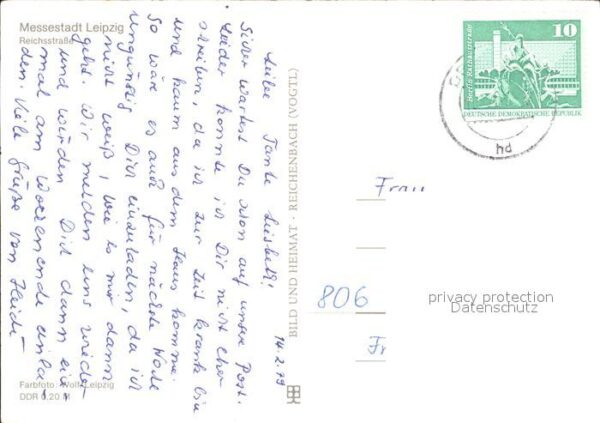 Messestadt Leipzig
Reichsstraße
14.2.79
Liebe Tante Lisbeth!
Sicher wartest Du schon auf unsere Post.
Leider konnte ich Dir nicht eher
schreiben, da ich zur Zeit krank bin
und kaum aus dem Haus komme.
So wäre es auch für nächste Woche
ungünstig Dich einzuladen, da ich
nicht weiß, wie es mir dann
geht. Wir melden uns wieder
und würden Dich dann ein-
mal am Wochenende einla-
den. Viele Grüße von Heidi
Farbfoto: Wolf, Leipzig
DDR 0,20 M
BILD UND HEIMAT · REICHENBACH (VOGTL)
10
Berlin Rathausstraße
DEUTSCHE DEMOKRATISCHE REPUBLIK
hd
Frau
806
privacy protection
Datenschutz
Fr